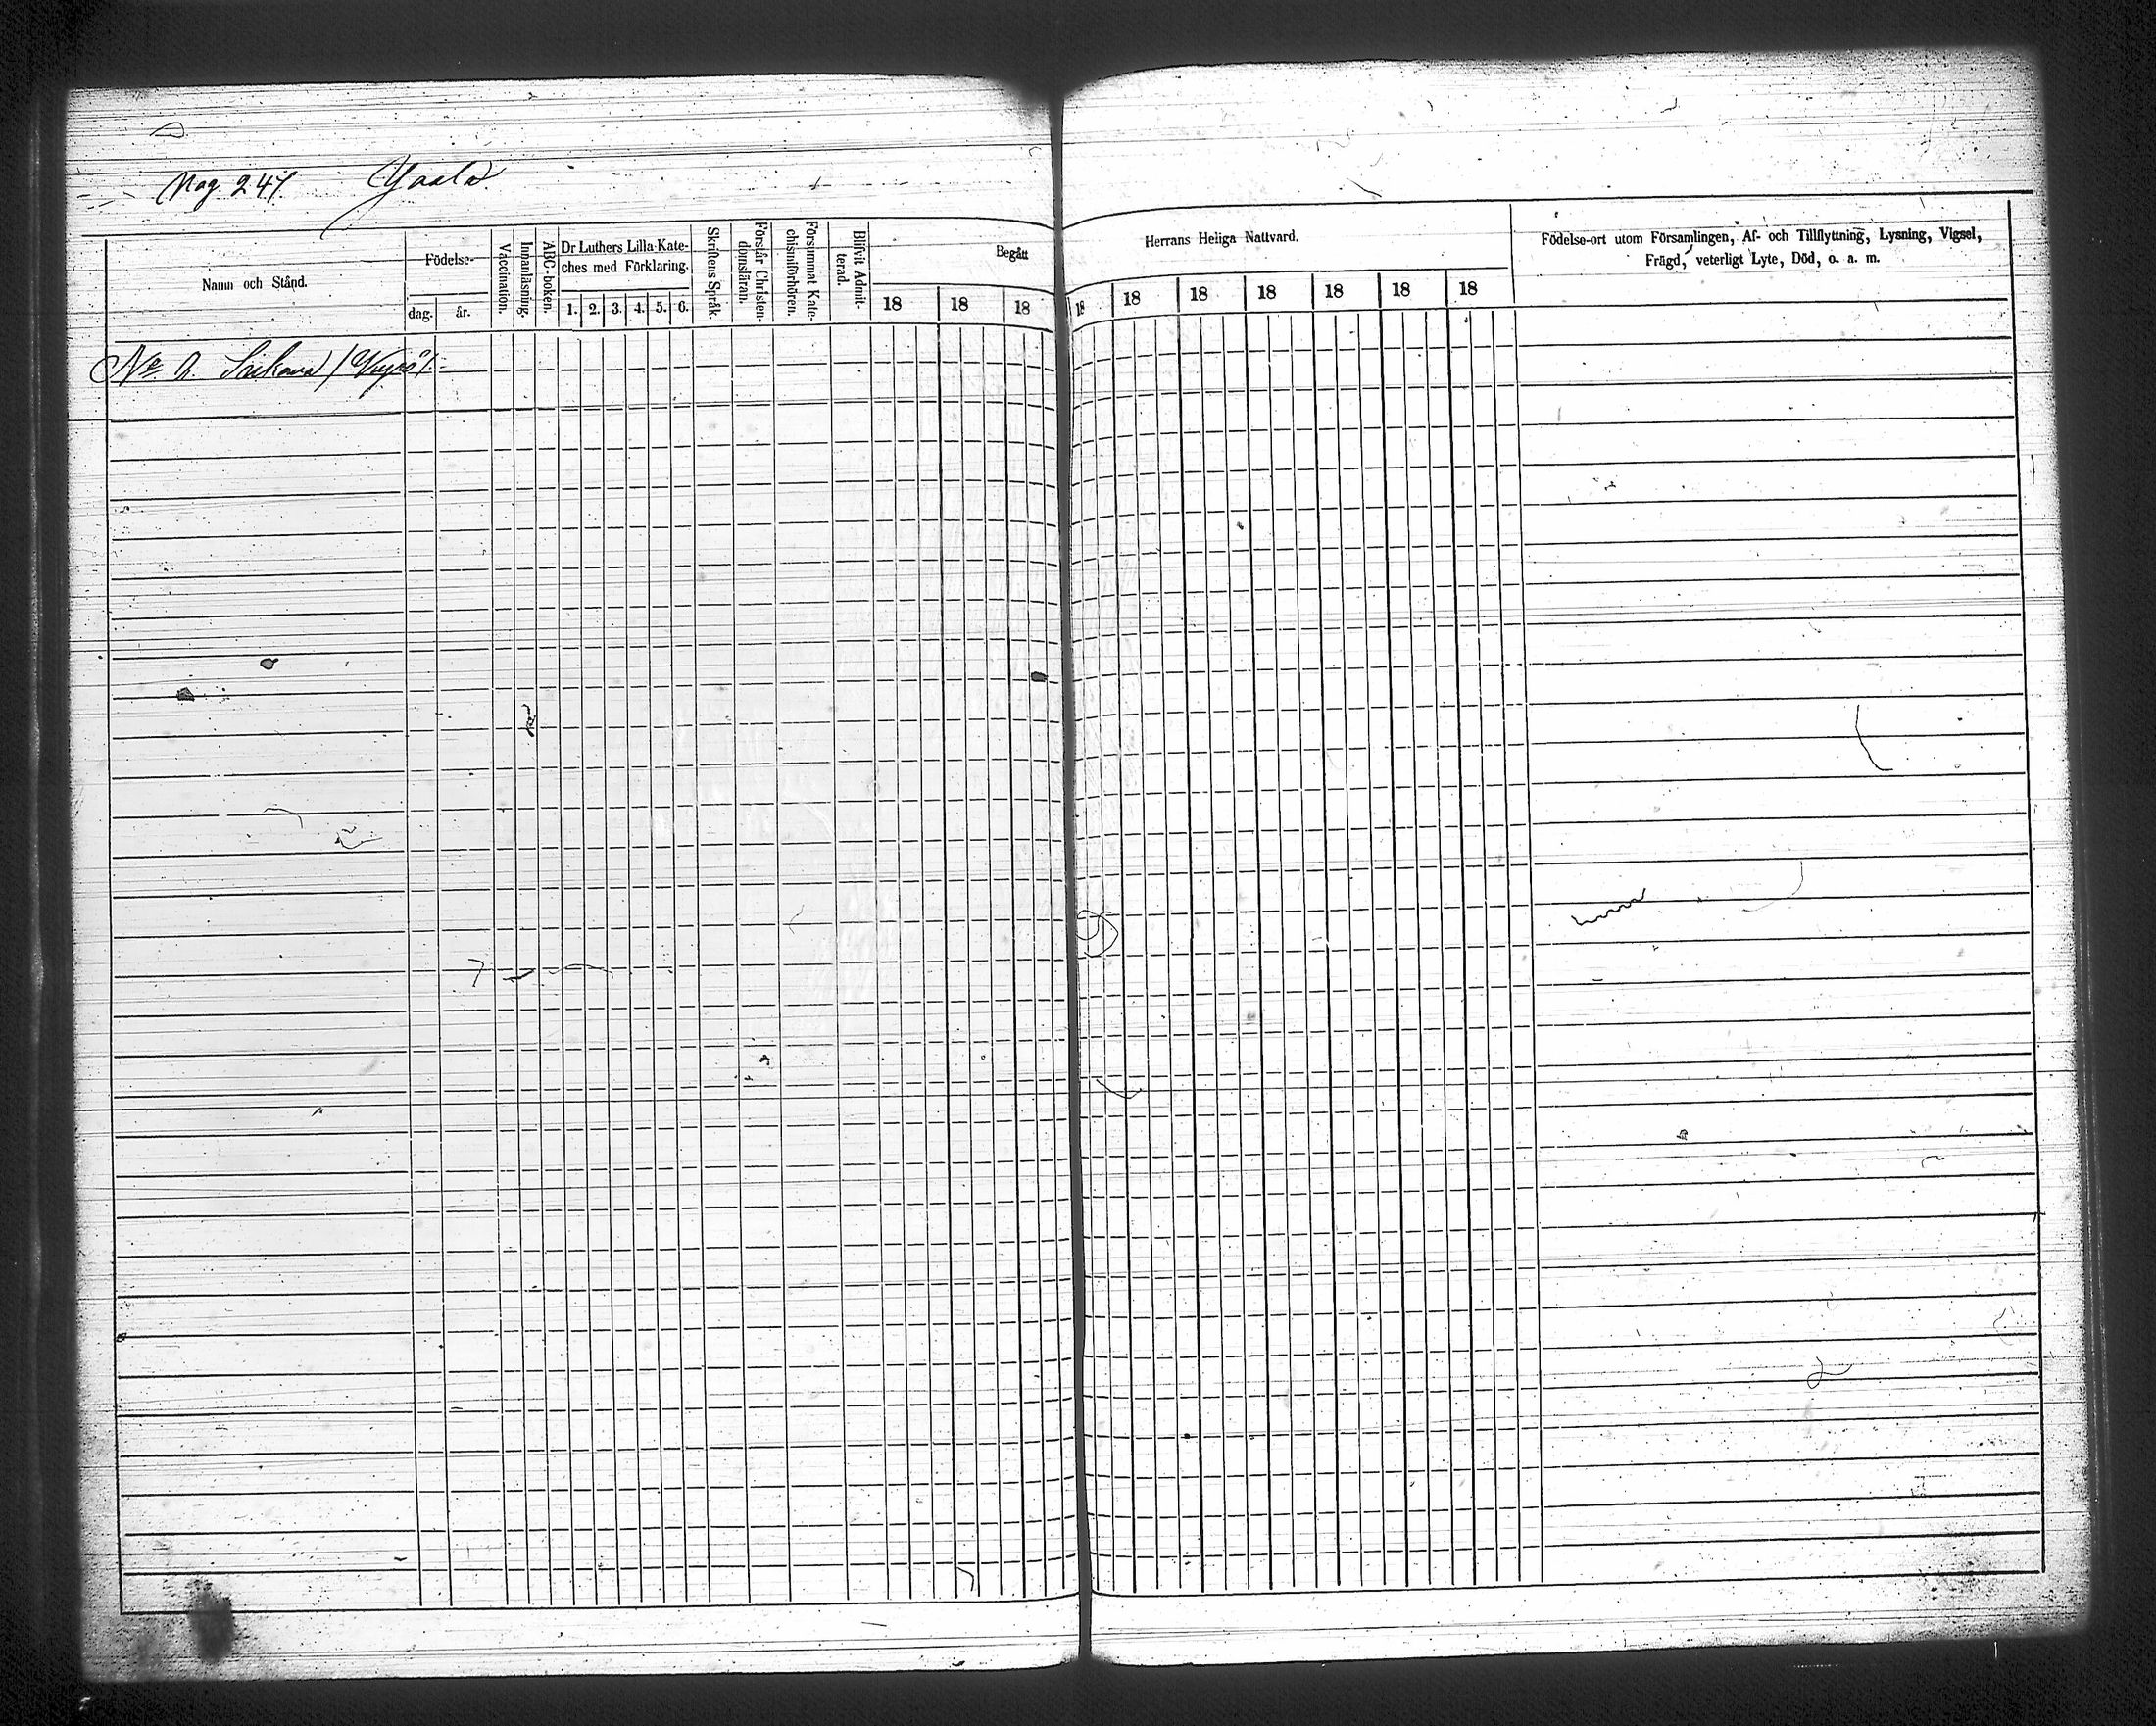 Pag. 247. Yaala
Namn och Stånd.
Födelse-
dag.
år.
Vaccination.
Innanläsning.
ABC-boken.
Dr Luthers Lilla Kate-
ches med Förklaring.
1. 2. 3. 4. 5. 6.
Skriftens Språk.
Förstår Christen-
domsläran.
Försummat Kate-
chismiförhören.
Blifvit Admit-
terad.
Begått
18 18 18
Herrans Heliga Nattvard.
18 18 18 18 18 18 18
Födelse-ort utom Församlingen, Af- och Tillflyttning, Lysning, Vigsel,
Frägd, veterligt Lyte, Död, o. a. m.
No 2.